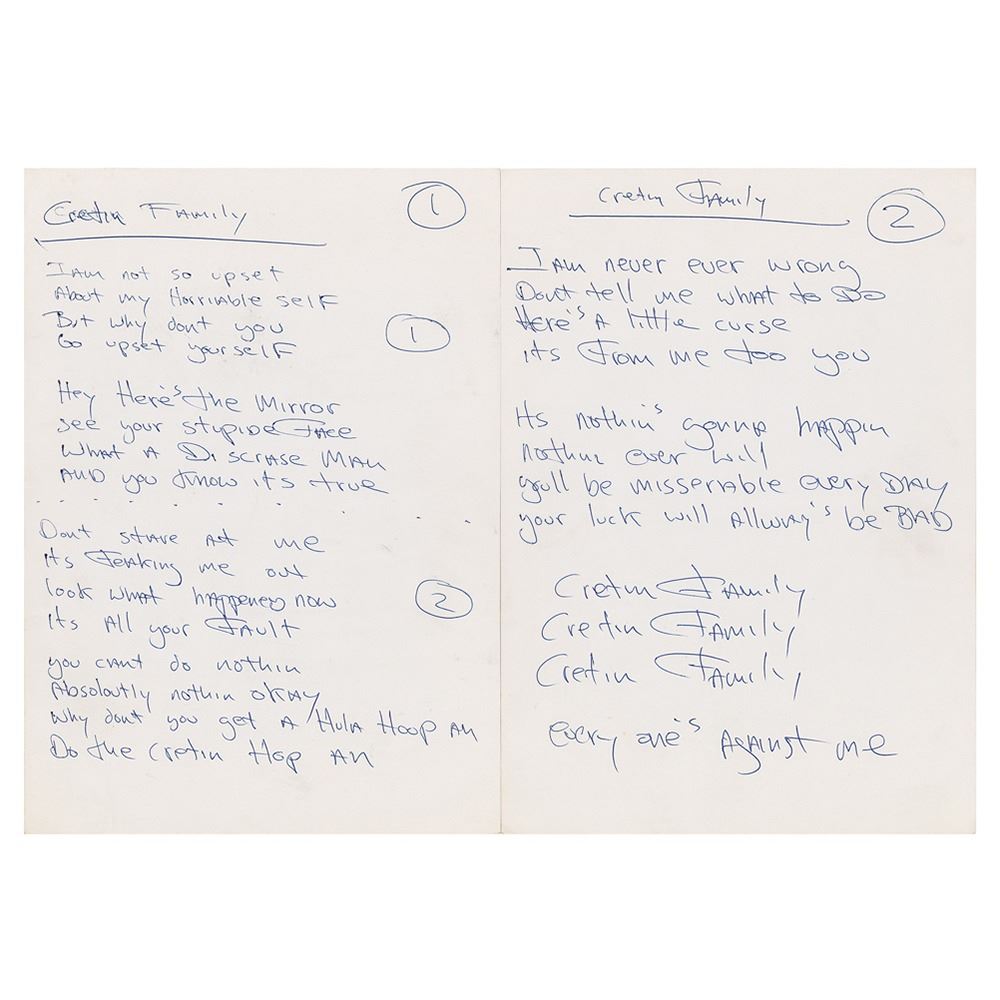 Cretin Family
1
I am not so upset
About my Horriable self
But why dont you
Go upset yourself
1
Hey Here's the Mirror
see your stupide Face
what A Discrase Man
AND you know its true
Dont stare At me
its freaking me out
look what happened now
its All your Fault
2
you cant do nothin
Absoloutly nothin okay
why dont you get A Hula Hoop An
Do the Cretin Hop An
Cretin Family
2
I Am never ever wrong
Dont tell me what to Do
Here's A little curse
its From me too you
Its nothin's gonna happin
nothin ever will
youll be misserable every DAY
your luck will Allway's be BAD
Cretin Family
Cretin Family
Cretin Family
every one's Against me